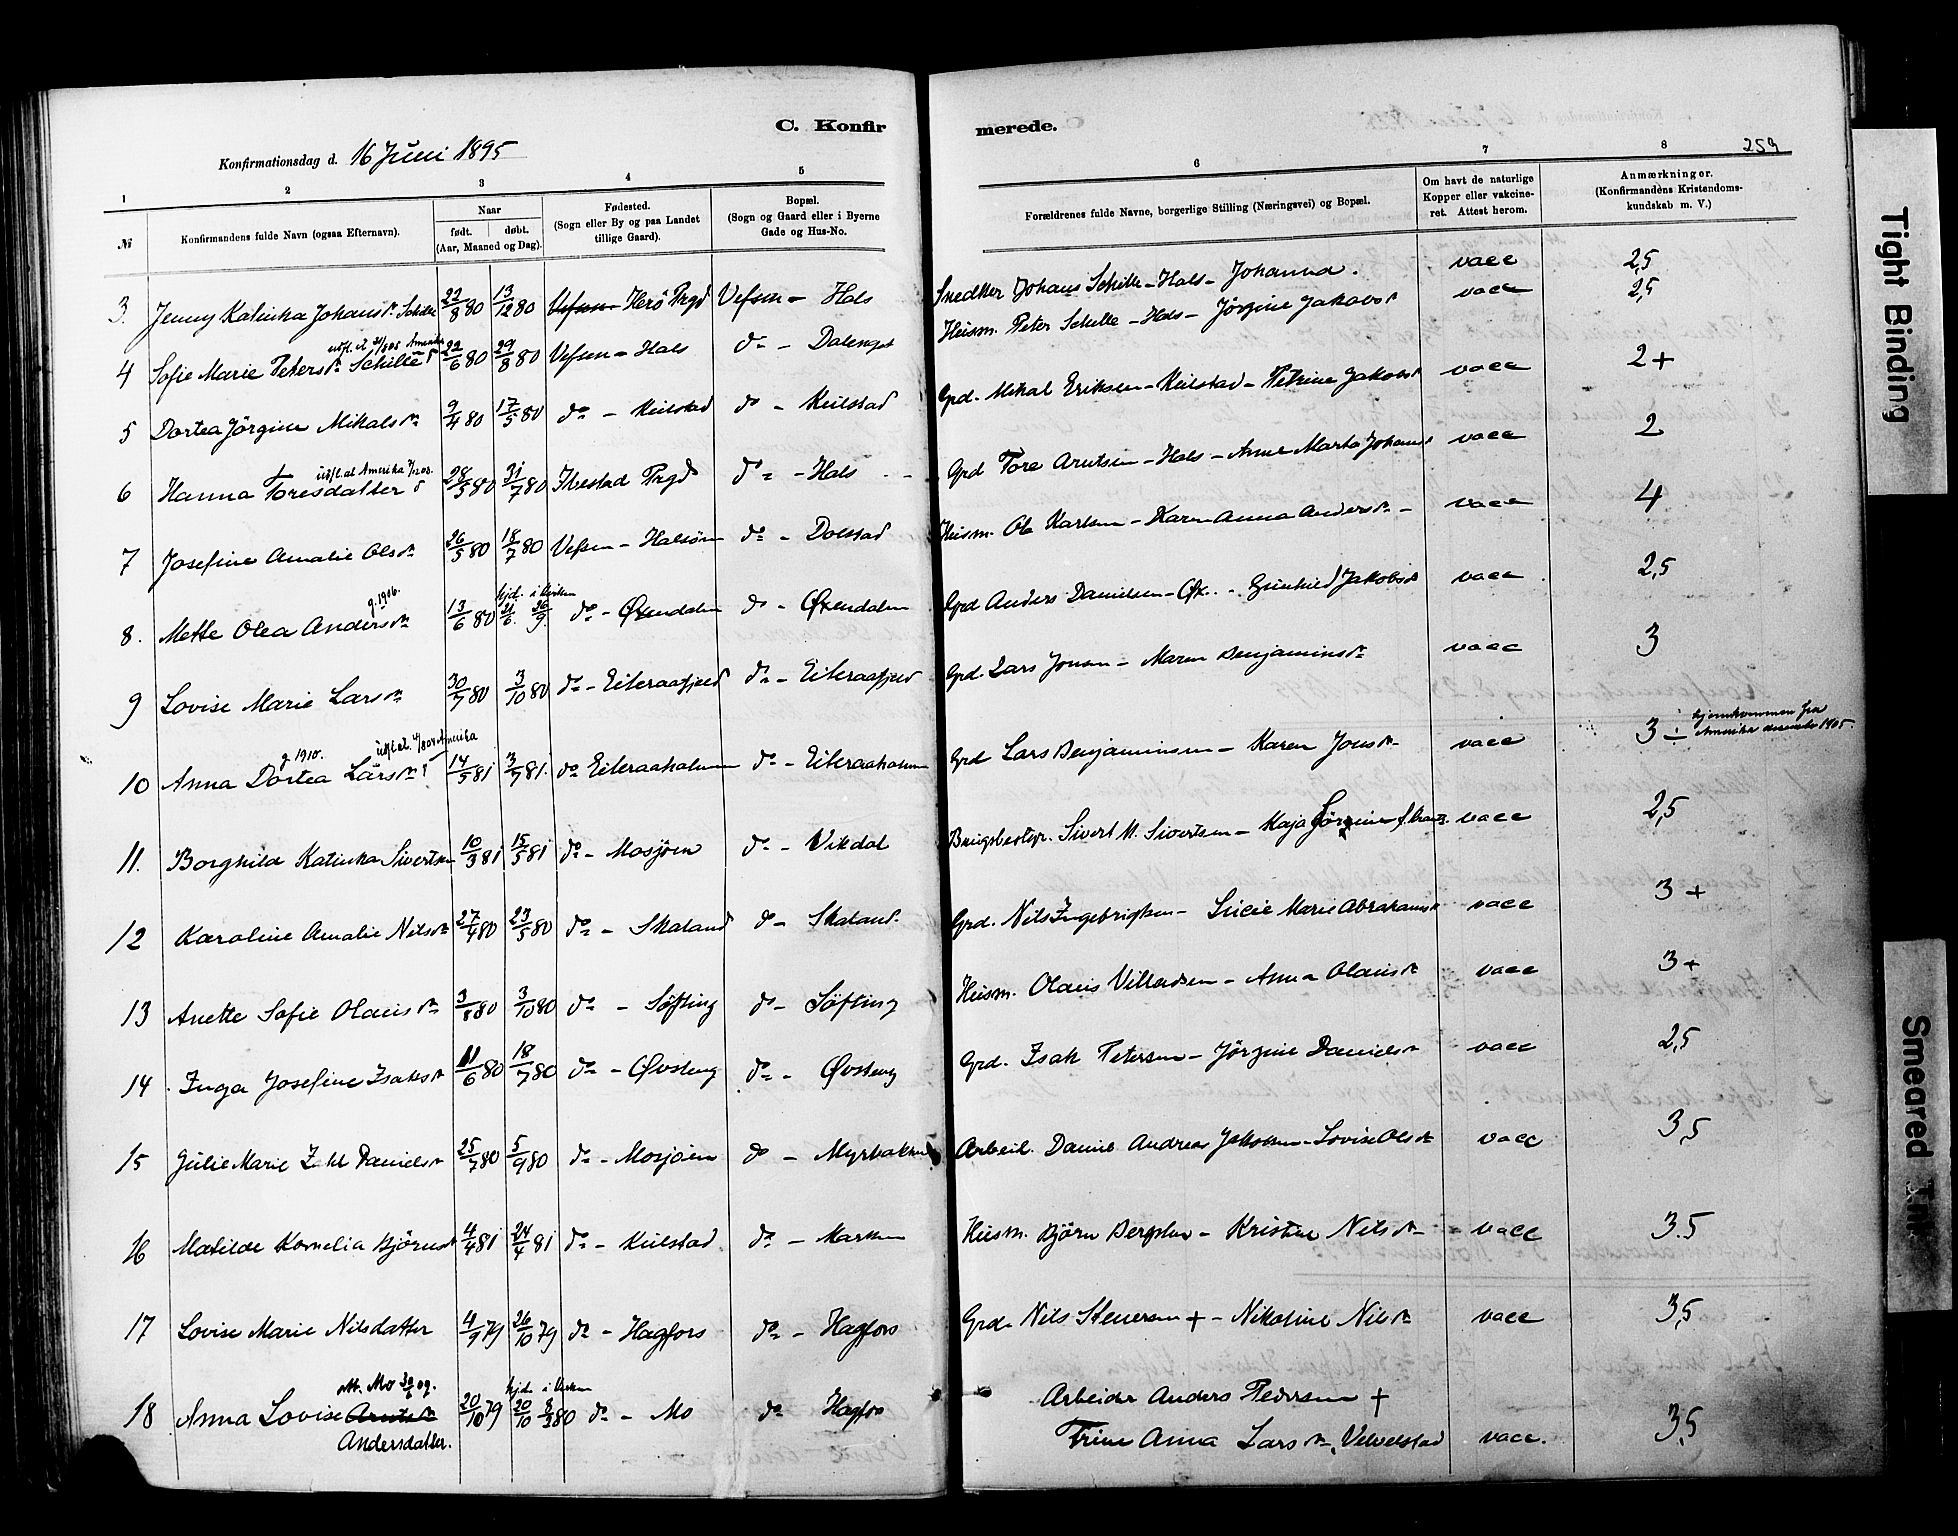 C. Konfir merede.
Konfirmationsdag d. 16 Juni 1895
259
1 2 3 4 5 6 7 8
№ Konfirmandens fulde Navn (ogsaa Efternavn). Naar født. døbt. (Aar, Maaned og Dag). Fødested. (Sogn eller By og paa Landet tillige Gaard). Bopæl. (Sogn og Gaard eller i Byerne Gade og Hus-No. Forældrenes fulde Navne, borgerlige Stilling (Næringsvei) og Bopæl. Om havt de naturlige Kopper eller vakcineret. Attest herom. Anmærkninger. (Konfirmandens Kristendomskundskab m. V.)
3. Jenny Katinka Johansdr Schille 22/8 80 13/12 80 Vefsen - Herö Prgd Vefsen - Hals Snedker Johans Schille - Hals - Johanna. vacc 2,5
udfl. at Amerika
4 Sofie Marie Petersdr Schille 22/6 80 29/8 80 Vefsen - Hals do - Dalenget Husm. Peter Schille - Hals - Jørgine Jakobsdr vacc 2,5
5 Dortea Jørgine Mikalsdr 9/4 80 17/5 80 do - Kulstad do - Kulstad Grd. Mikal Eriksen - Kulstad - Petrine Jakobsdr vacc 2+
udfl. at Amerika
6 Hanna Toresdatter 28/5 80 31/7 80 Ibestad Prgd do - Hals Grd Tore Arntsen - Hals - Anne Marta Johansdr vacc 2
7 Josefine Amalie Olsdr 26/5 80 18/7 80 Vefsen - Halsöen do - Dolstad Husm. Ole Karlsen - Karen Anna Andersdr - vacc 4
g. 1906. hjd. i Kirken
8. Mette Olea Andersdr 13/6 80 21/6. 26/9. do - Øxendalen do - Øxendalen Grd Anders Danielsen - Øx. - Gunhild Jakobsdr vacc 2,5
9 Lovise Marie Larsdr 30/7 80 3/10 80 do - Eiteraafjeld do - Eiteraafjeld Grd. Lars Jonsen - Maren Benjaminsdr vacc 3
g. 1910. udfl. at Amerika
10 Anna Dortea Larsdr 14/5 81 3/7 81. do Eiteraaholmen do - Eiteraaholmen Grd Lars Benjaminsen - Karen Jonsdr vacc 3 ÷ hjemkommen fra Amerika desember 1905.
11. Borghild Katinka Sivertsen 10/3 81 15/5 81 do - Mosjøen do - Vikdal Brugsbestyr. Sivert M. Sivertsen - Kaja Jørgine vacc 2,5
12 Karoline Amalie Nilsdr 27/4 80 23/5 80 do - Skaland do - Skaland Grd. Nils Ingebrigtsen - Lucie Marie Abrahamsdr vacc 3 +
13 Anette Sofie Olausdr 3/8 80 3/10 80 do - Søfting do - Søfting Husm. Olaus Villadsen - Anna Olausdr vacc 3 +
14 Inga Josefine Isaksdr 11/6 80 18/7 80 do - Øvsteng do - Øvsteng Grd. Isak Petersen - Jørgine Danielsdr vacc 2,5
15 Julie Marie Zahl Danielsdr 25/7 80 5/9 80 do - Mosjøen do - Myrbakken Arbeid. Daniel Andreas Jakobsen - Lovise Olsdr vacc 3,5
16 Matilde Kornelia Bjørnsdr 4/4 81 24/4 81 do - Kulstad do - Marken Husm. Bjørn Bergsen - Kristine Nilsdr vacc 3.5
17 Lovise Marie Nilsdatter 4/9 79 26/10 79 do - Hagfors do - Hagfors Grd. Nils Steuersen + - Nikoline Nilsdr vacc 3,5
att. Mo 30/6 09. hjd. i Kirken
18 Anna Lovise Arntsdr Andersdatter. 20/10 79 20/10 8/3 80 do - Mo do Hagfors Arbeider Anders Pedersen +
Trine Anna Larsdr, Velvelstad vacc. 3,5
Tight Binding
Smeared Ink